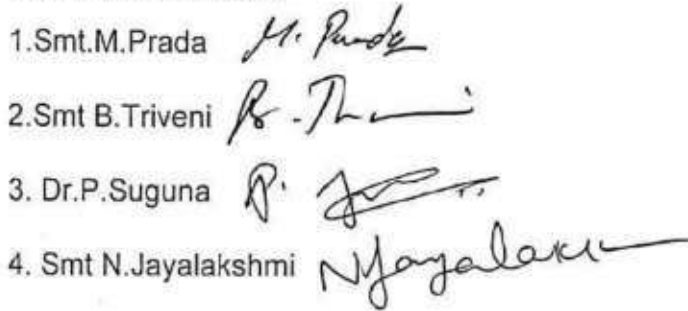 1.Smt.M.Prada M. Prada
2.Smt B.Triveni B.
3. Dr.P.Suguna P.
4. Smt N.Jayalakshmi NJayalak